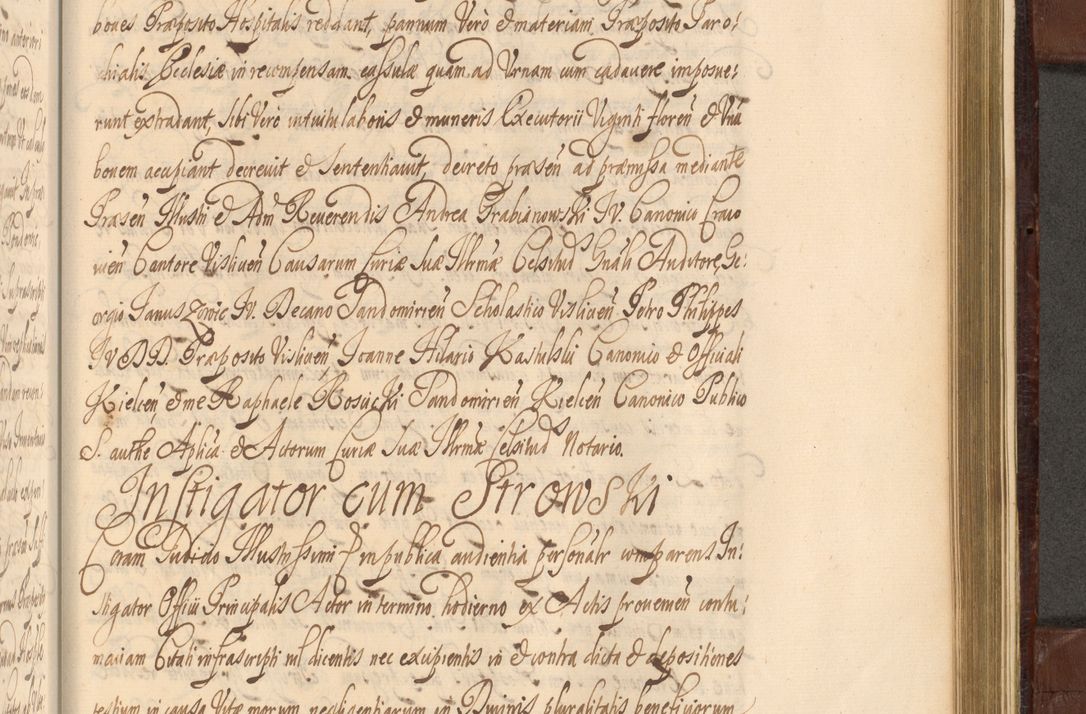 boves Præposito Hospitalis reddant, pannum Verò & materiam Præposito Paro:
chialis Ecclesiæ in recompensam casulæ quam ad Urnam cum cadavere imposue:
runt extradant, sibi Verò intuitu laboris & muneris Executorii Viginti floren̄ & Unū
bovem accipiant decrevit & sententiavit, decreto præsen̄ ad præmissa mediante
Præsen̄ Illustri & Adm̄ Reverendis Andrea Grabianowski I.V. Canonico Craco
vien̄ Cantore Vislicen̄ Causarum Curiæ Suæ Illrmæ Celsitud̄s Gnāli Auditore, Ge:
orgio Januszowic I.V. Decano Sandomirien̄ Scholastico Vislicen̄ Petro Philippes
IV DD. Præposito Vislicen̄ Joanne Hilario Kastulski Canonico & Officiali
Kielcen̄, & me Raphaele Rosucki Sandomirien̄ Kielcen̄ Canonico Publico
S. authe Aplica & Actorum Curiæ Suæ Illrmæ Celsitud̄s Notario.
Instigator cum Strowski
Coram Judicio Illustrissimi P in publica audientia personalr comparens In:
stigator Officii Principalis Actor in termino hodierno ex Actis provenien̄ contu:
maciam Citati infrascripti nl dicentis nec excipientis in & contra dicta & depositiones
testium in causa Vitæ morum negligentiarum in Divinis pluralitatis beneficiorum